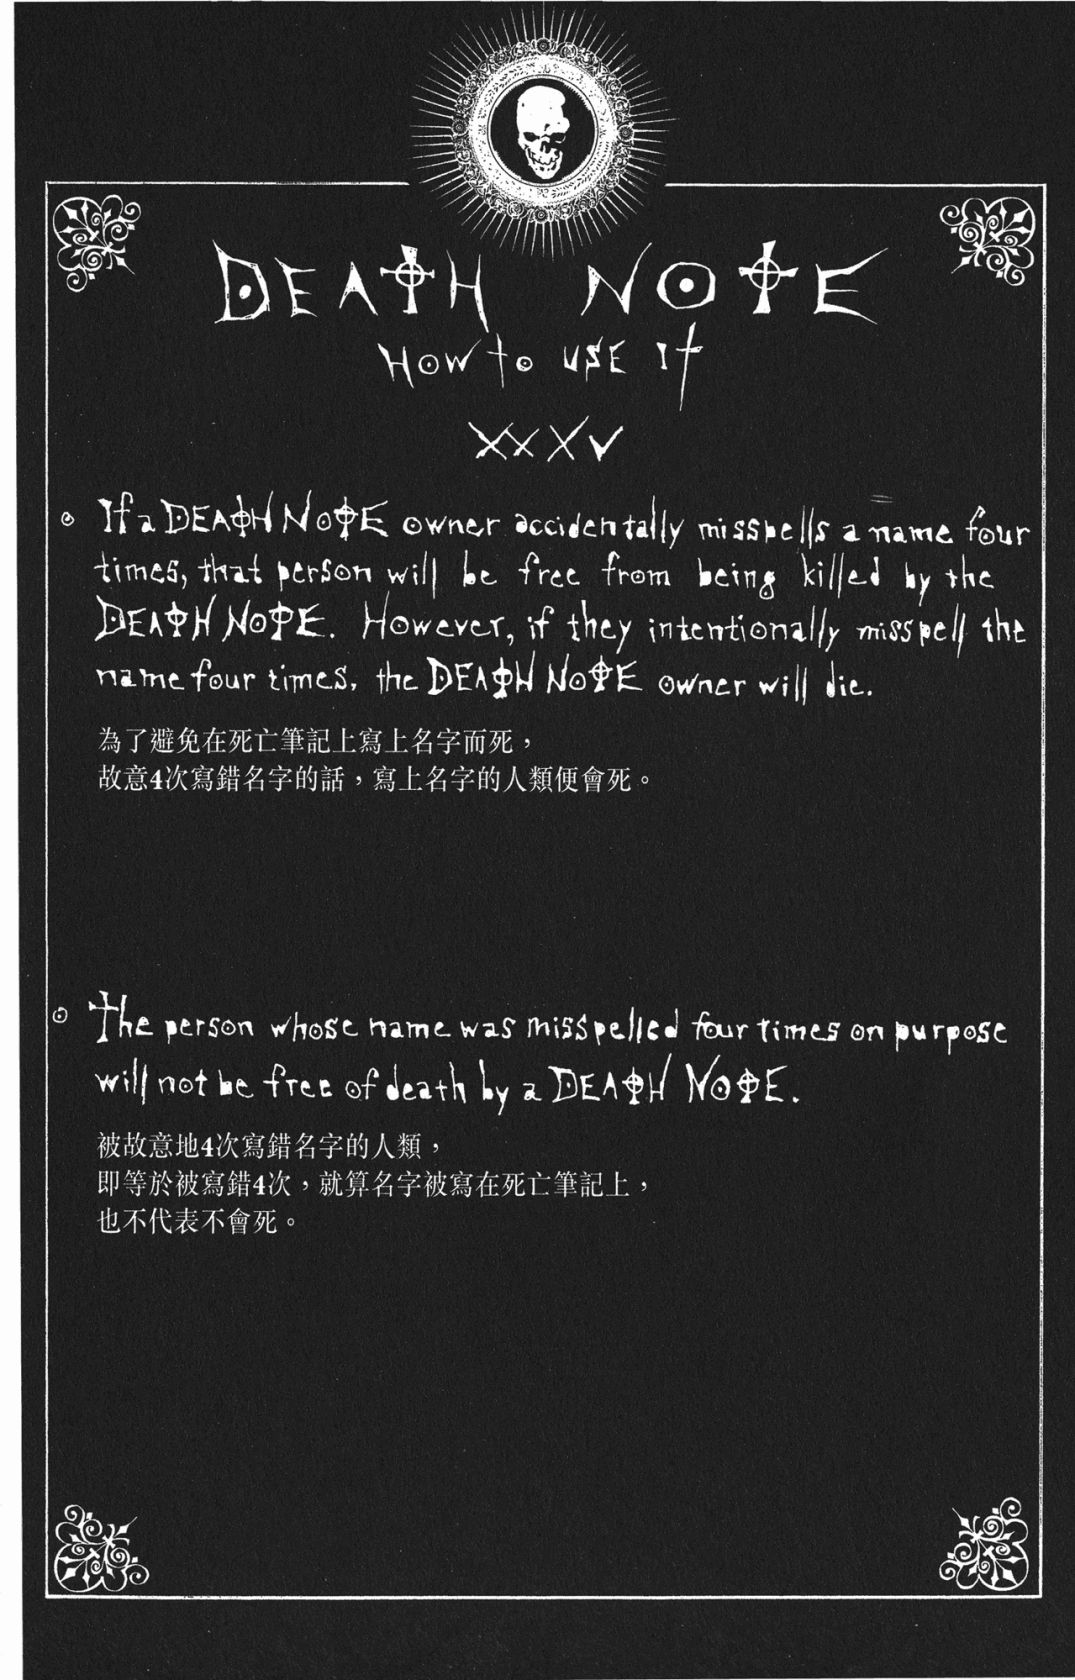 DEATH NOTE
HOW to USE It
XXXV
If a DEATH NOTE owner accidentally misspells a name four
times, that person will be free from being killed by the
DEATH NOTE. However, if they intentionally misspell the
name four times, the DEATH NOTE owner will die.
為了避免在死亡筆記上寫上名字而死，
故意4次寫錯名字的話，寫上名字的人類便會死。
The person whose name was misspelled four times on purpose
will not be free of death by a DEATH NOTE.
被故意地4次寫錯名字的人類，
即等於被寫錯4次，就算名字被寫在死亡筆記上，
也不代表不會死。